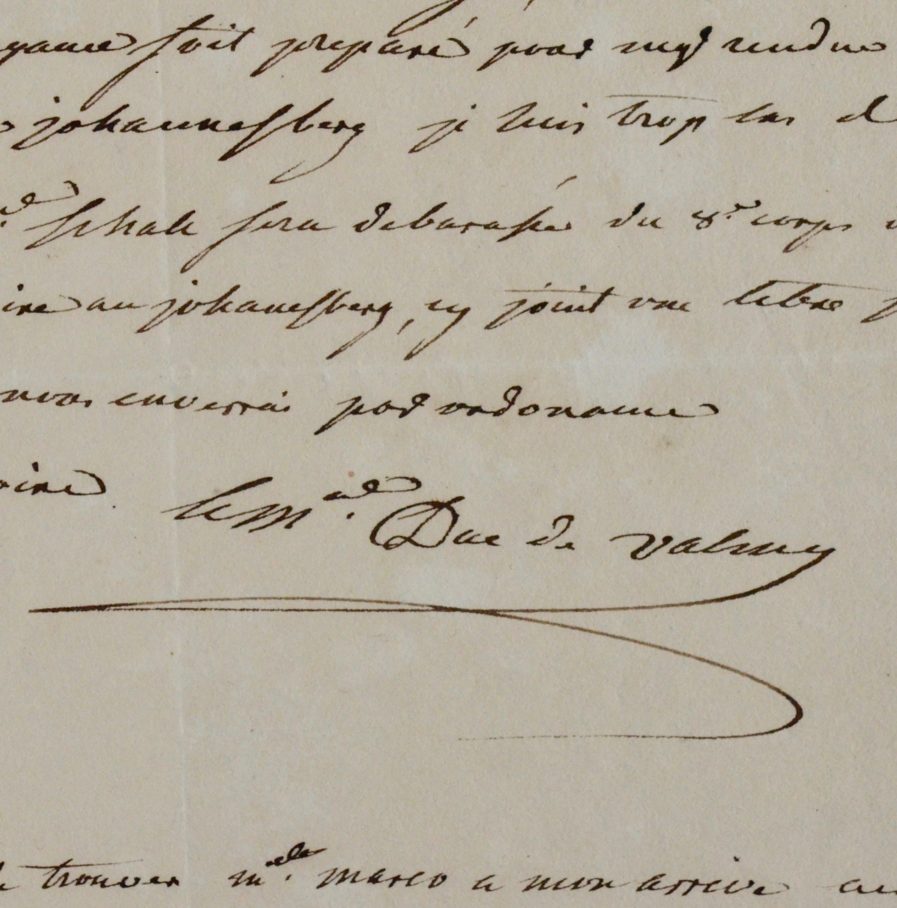 soit preparé pour my rendre
johannesberg je suis trop las d
schall sera debarassé du 8e corps
aire au johanesberg, cy joint une lettre
vous enverrai par ordonance
oire
le Mal. Duc de valmy
trouver marco a mon arrive au